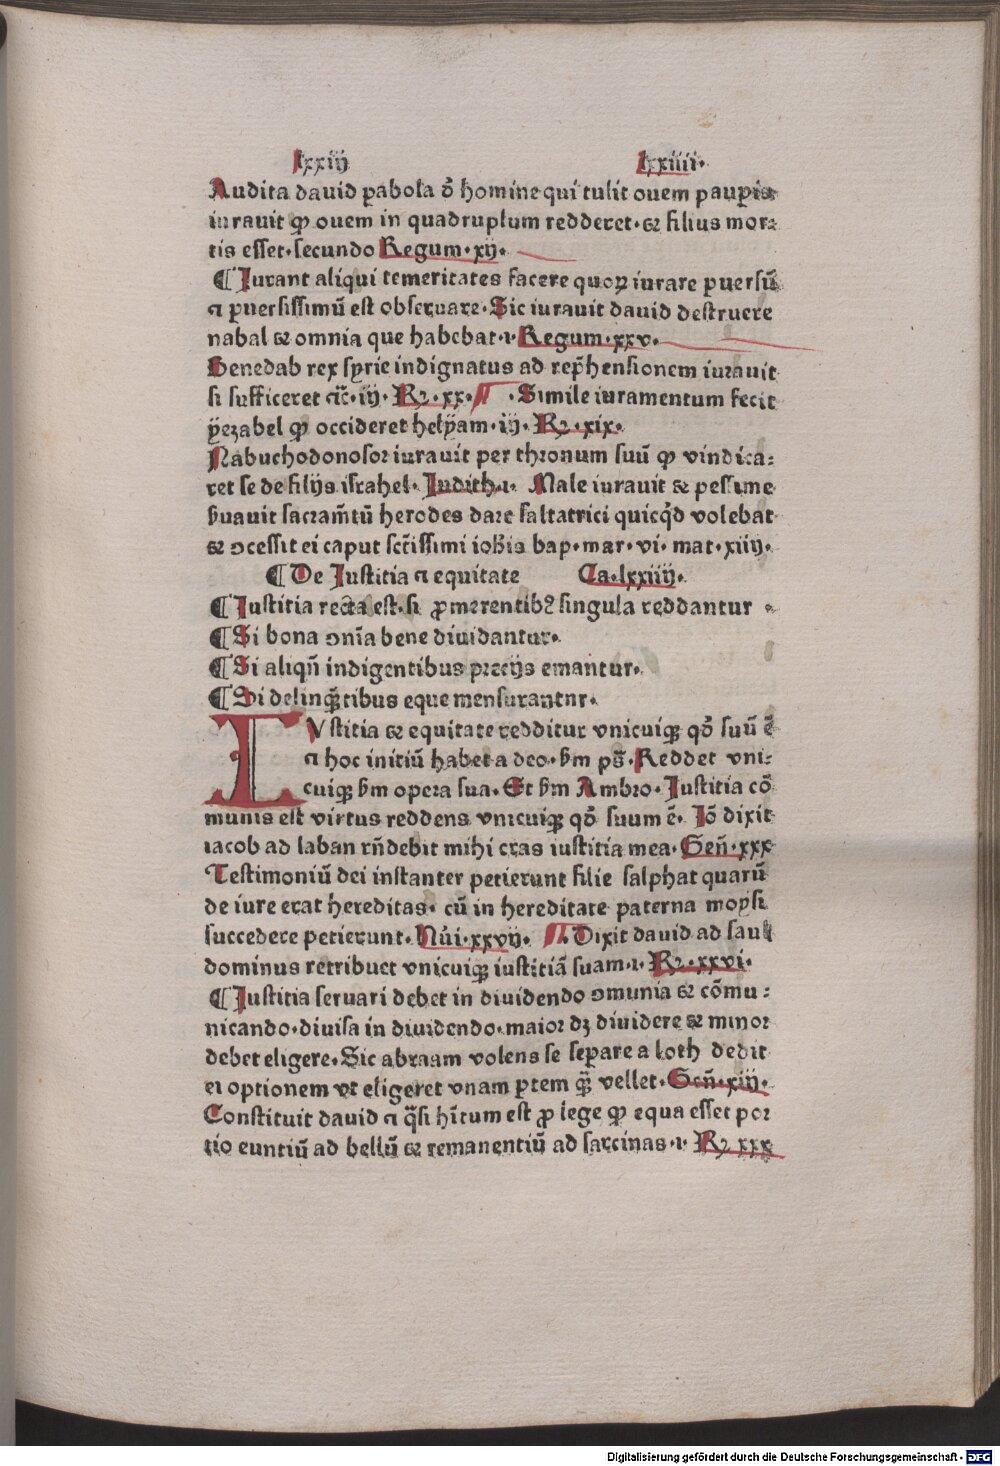 lxxiij lxxiiii·
Audita dauid ꝑabola ō homine qui tulit ouem pauꝑis
iurauit ꝙ ouem in quadruplum redderet· ⁊ filius mor⸗
tis esset· secundo Regum·xij·
¶ Iurant aliqui temeritates facere quoꝝ iurare ꝑuersū
ꞇ ꝑuersissimū est obseruare· Sic iurauit dauid destruere
nabal ⁊ omnia que habebat·ı· Regum·xxv·
Benedab rex syrie indignatus ad rep̄hensionem iurauit
si sufficeret ·iij· Rꝫ·xx· ¶ ·Simile iuramentum fecit
ÿezabel ꝙ occideret helÿam·iij· Rꝫ·xix·
Nabuchodonosor iurauit per thronum suū ꝙ vindica⸗
ret se de filijs israhel· Iudith·ı· Male iurauit ⁊ pessime
ẜuauit sacram̄tū herodes dare saltatrici quicq̇d volebat·
⁊ ꝯcessit ei caput sc̄tissimi ioh̄is bap·mar·vi·mat·xiiij·
¶ De Iustitia ꞇ equitate Ca·lxxiiij·
¶ Iustitia recta est·si ꝓmerentibꝰ singula reddantur ·
¶ Si bona ꝯnīa bene diuidantur·
¶ Si aliqn̄ indigentibus precijs emantur·
¶ Si delinq̄ntibus eque mensurantur·
IVstitia ⁊ equitate redditur vnicuiqꝫ qō suū ē
ꞇ hoc initiū habet a deo· ẜm ps̄· Reddet vni⸗
cuiqꝫ ẜm opera sua· Et ẜm Ambro· Iustitia cō
munis est virtus reddens vnicuiqꝫ qō suum ē· Iō dixit
iacob ad laban rn̄debit mihi cras iustitia mea· Gen̄·xxx
Testimoniū dei instanter petierunt filie salphat quarū
de iure erat hereditas· cū in hereditate paterna moysi
succedere petierunt· Nūi·xxvij· ¶· Dixit dauid ad saul
dominus retribuet vnicuiqꝫ iustitiā suam·ı· Rꝫ·xxvi·
¶ Iustitia seruari debet in diuidendo ꝯmunia ⁊ cōmu⸗
nicando·diuisa in diuidendo·maior dꝫ diuidere ⁊ minor
debet eligere· Sic abraam volens se seꝑare a loth dedit
ei optionem vt eligeret vnam ꝑtem q̄ꝫ vellet· Gen̄·xiij·
Constituit dauid ꞇ q̄si h̄itum est ꝓ lege ꝙ equa esset por
tio euntiū ad bellū ⁊ remanentiū ad sarcinas·ı· Rꝫ xxx
Digitalisierung gefördert durch die Deutsche Forschungsgemeinschaft · DFG